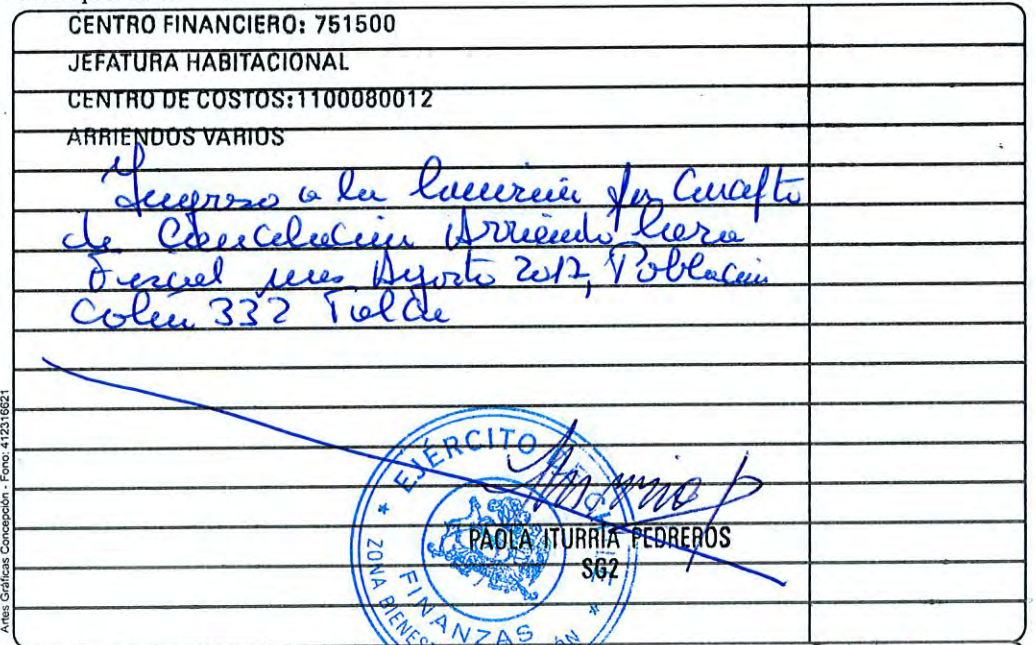 CENTRO FINANCIERO: 751500
JEFATURA HABITACIONAL
CENTRO DE COSTOS:1100080012
ARRIENDOS VARIOS
Ingreso a la por
de Cancelacion Arriendo
Fiscal mes Agosto 2012, Poblacion
Colin 332 Talca
EJÉRCITO DE CHILE
PAOLA ITURRIA PEDREROS
SG2
ZONA
FINANZAS
Artes Gráficas Concepción - Fono: 412316621